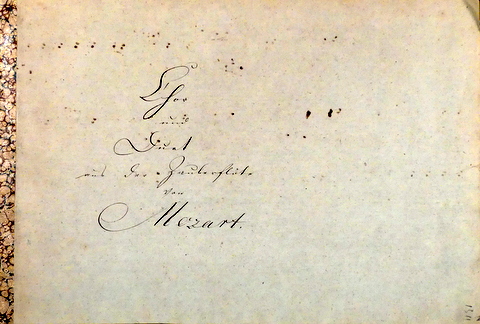 Chor
und
Duet
aus der Zauberflöte
von
Mozart.